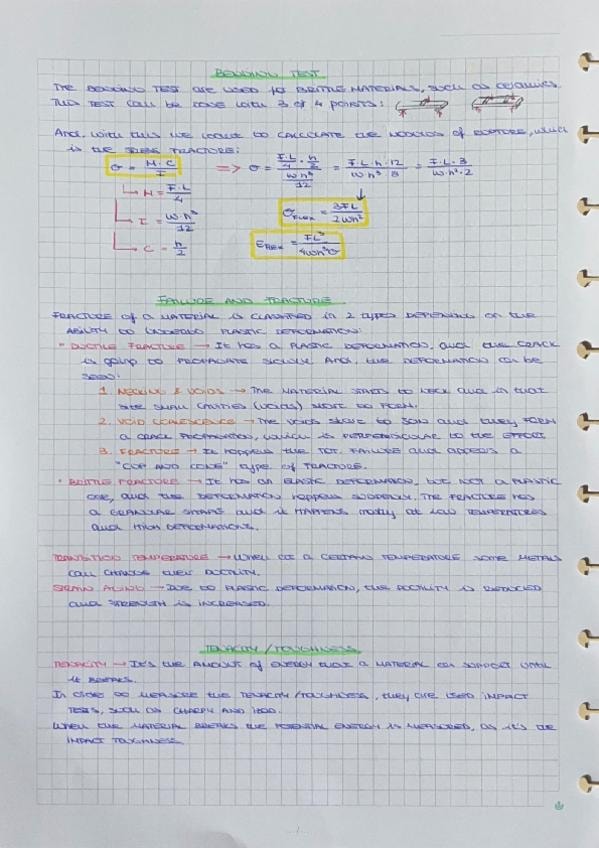 BENDING TEST
THE BENDING TEST are used for BRITTLE MATERIALS, such as ceramics.
THIS TEST can be done with 3 or 4 points:
And, with this we want to CALCULATE the MODULUS of RUPTURE, which
is the FRACTURE:
σ = M·C / I ⇒ σ = (F·L/4 · h/2) / (w·h³/12) = F·L·h·12 / w·h³·8 = F·L·3 / w·h²·2
M = F·L / 4
I = w·h³ / 12
C = h / 2
σ FLEX = 3FL / 2wh²
E FLEX = FL³ / 4wh³δ
FAILURE AND FRACTURE
FRACTURE of a MATERIAL is CLASSIFIED in 2 types DEPENDING on the
ABILITY to UNDERGO PLASTIC DEFORMATION:
* DUCTILE FRACTURE → It has a PLASTIC DEFORMATION, and the CRACK
is going to PROPAGATE SLOWLY. And, the DEFORMATION can be
SEEN:
1. NECKING & VOIDS → THE MATERIAL STARTS to NECK and in that
site SMALL CAVITIES (VOIDS) START to FORM.
2. VOID COALESCENCE → THE VOIDS START to JOIN and they FORM
a CRACK PROPAGATION, which is PERPENDICULAR to the EFFORT
3. FRACTURE → It happens the TOT. FAILURE and appears a
"CUP AND CONE" type of FRACTURE.
* BRITTLE FRACTURE → It has an ELASTIC DEFORMATION, but NOT a PLASTIC
one, and the DEFORMATION happens SUDDENLY. THE FRACTURE HAS
a GRANULAR and it HAPPENS mostly at LOW TEMPERATURES
and HIGH DEFORMATIONS.
TRANSITION TEMPERATURE → When at a CERTAIN TEMPERATURE some METALS
can CHANGE their DUCTILITY.
STRAIN AGING → Due to PLASTIC DEFORMATION, the DUCTILITY is REDUCED
and STRENGTH is INCREASED.
TENACITY / TOUGHNESS
TENACITY → It's the AMOUNT of ENERGY that a MATERIAL can SUPPORT UNTIL
it BREAKS.
In order to MEASURE the TENACITY/TOUGHNESS, they are USED IMPACT
TESTS, such as CHARPY AND IZOD.
When the MATERIAL BREAKS the POTENTIAL ENERGY is MEASURED, as it's the
IMPACT TOUGHNESS.